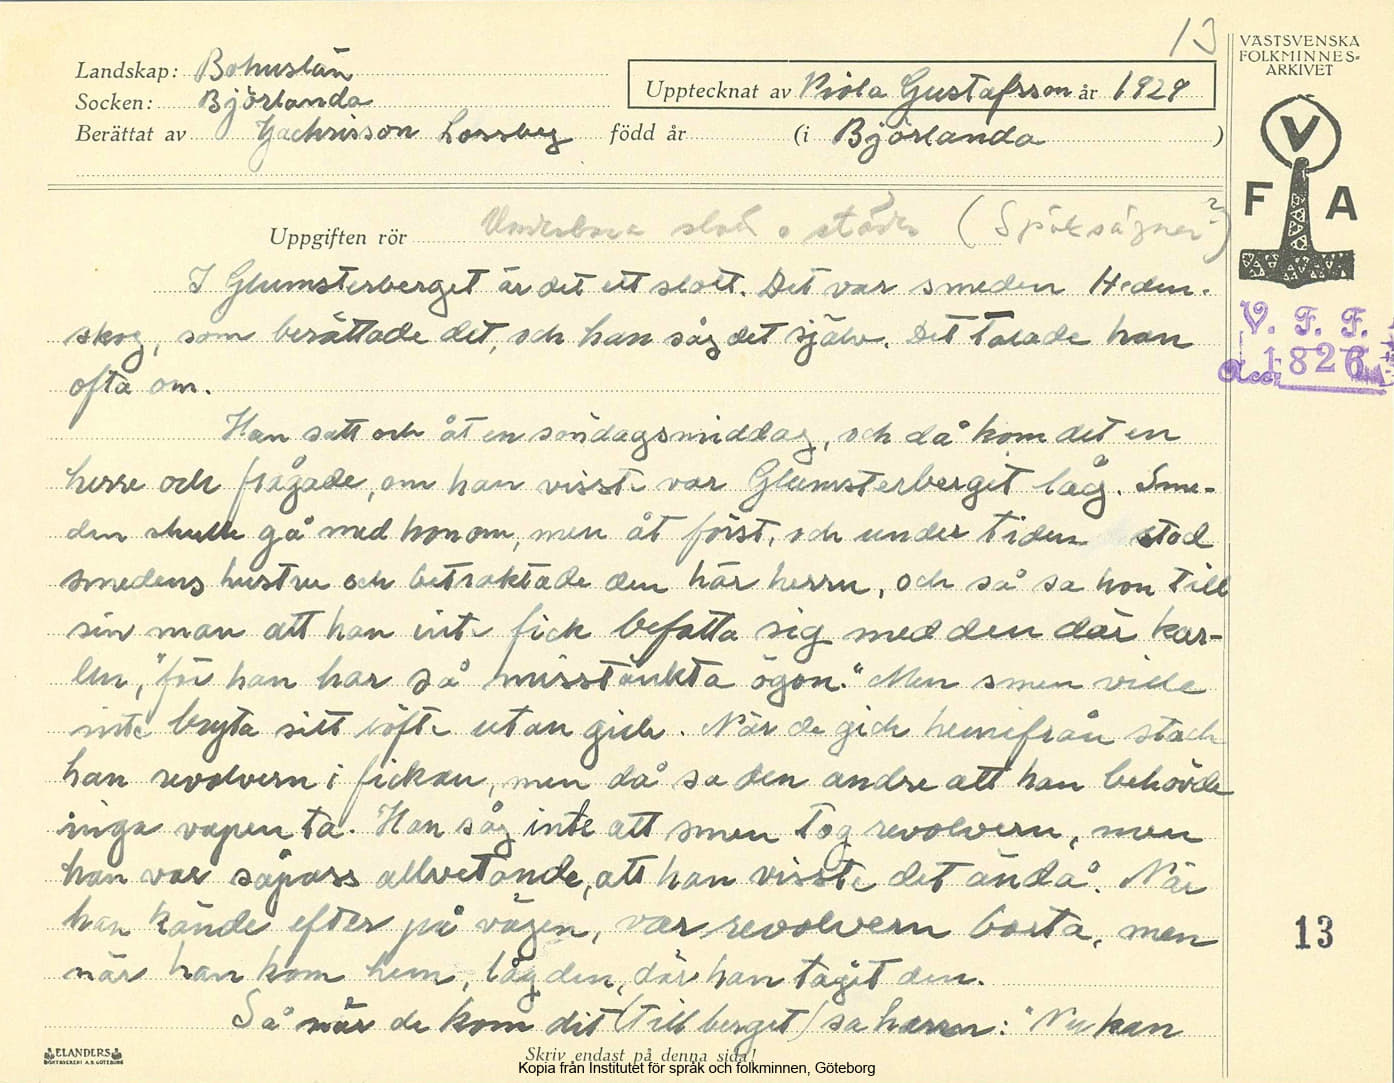 13
VÄSTSVENSKA
FOLKMINNES-
ARKIVET
Landskap: Bohuslän
Socken: Björlanda
Upptecknat av Viola Gustafsson år 1929
Berättat av Zachrisson Lossby född år (i Björlanda)
V
F A
Uppgiften rör Underbara slott o städer (Spöksägner?)
I Glumsterberget är det ett slott. Det var smeden Heden-
skog, som berättade det, och han såg det själv. Det talade han
ofta om.
V. F. F.
Acc. 1826
Han satt och åt en söndagsmiddag, och då kom det en
herre och frågade, om han visste var Glumsterberget låg. Sme-
den skulle gå med honom, men åt först, och under tiden stod
smedens hustru och betraktade den här herrn, och så sa hon till
sin man att han inte fick befatta sig med den där kar-
len, "för han har så misstänkta ögon." Men smen ville
inte bryta sitt löfte utan gick. När de gick hemifrån stack
han revolvern i fickan, men då sa den andre att han behövde
inga vapen ta. Han såg inte att smen tog revolvern, men
han var såpass allvetande, att han visste det ändå. När
han kände efter på vägen, var revolvern borta, men
när han kom hem, låg den, där han tagit den.
13
Så när de kom dit (till berget) sa herrn: "Nu kan
ELANDERS
BOKTRYCKERI A.B. GÖTEBORG
Skriv endast på denna sida!
Kopia från Institutet för språk och folkminnen, Göteborg